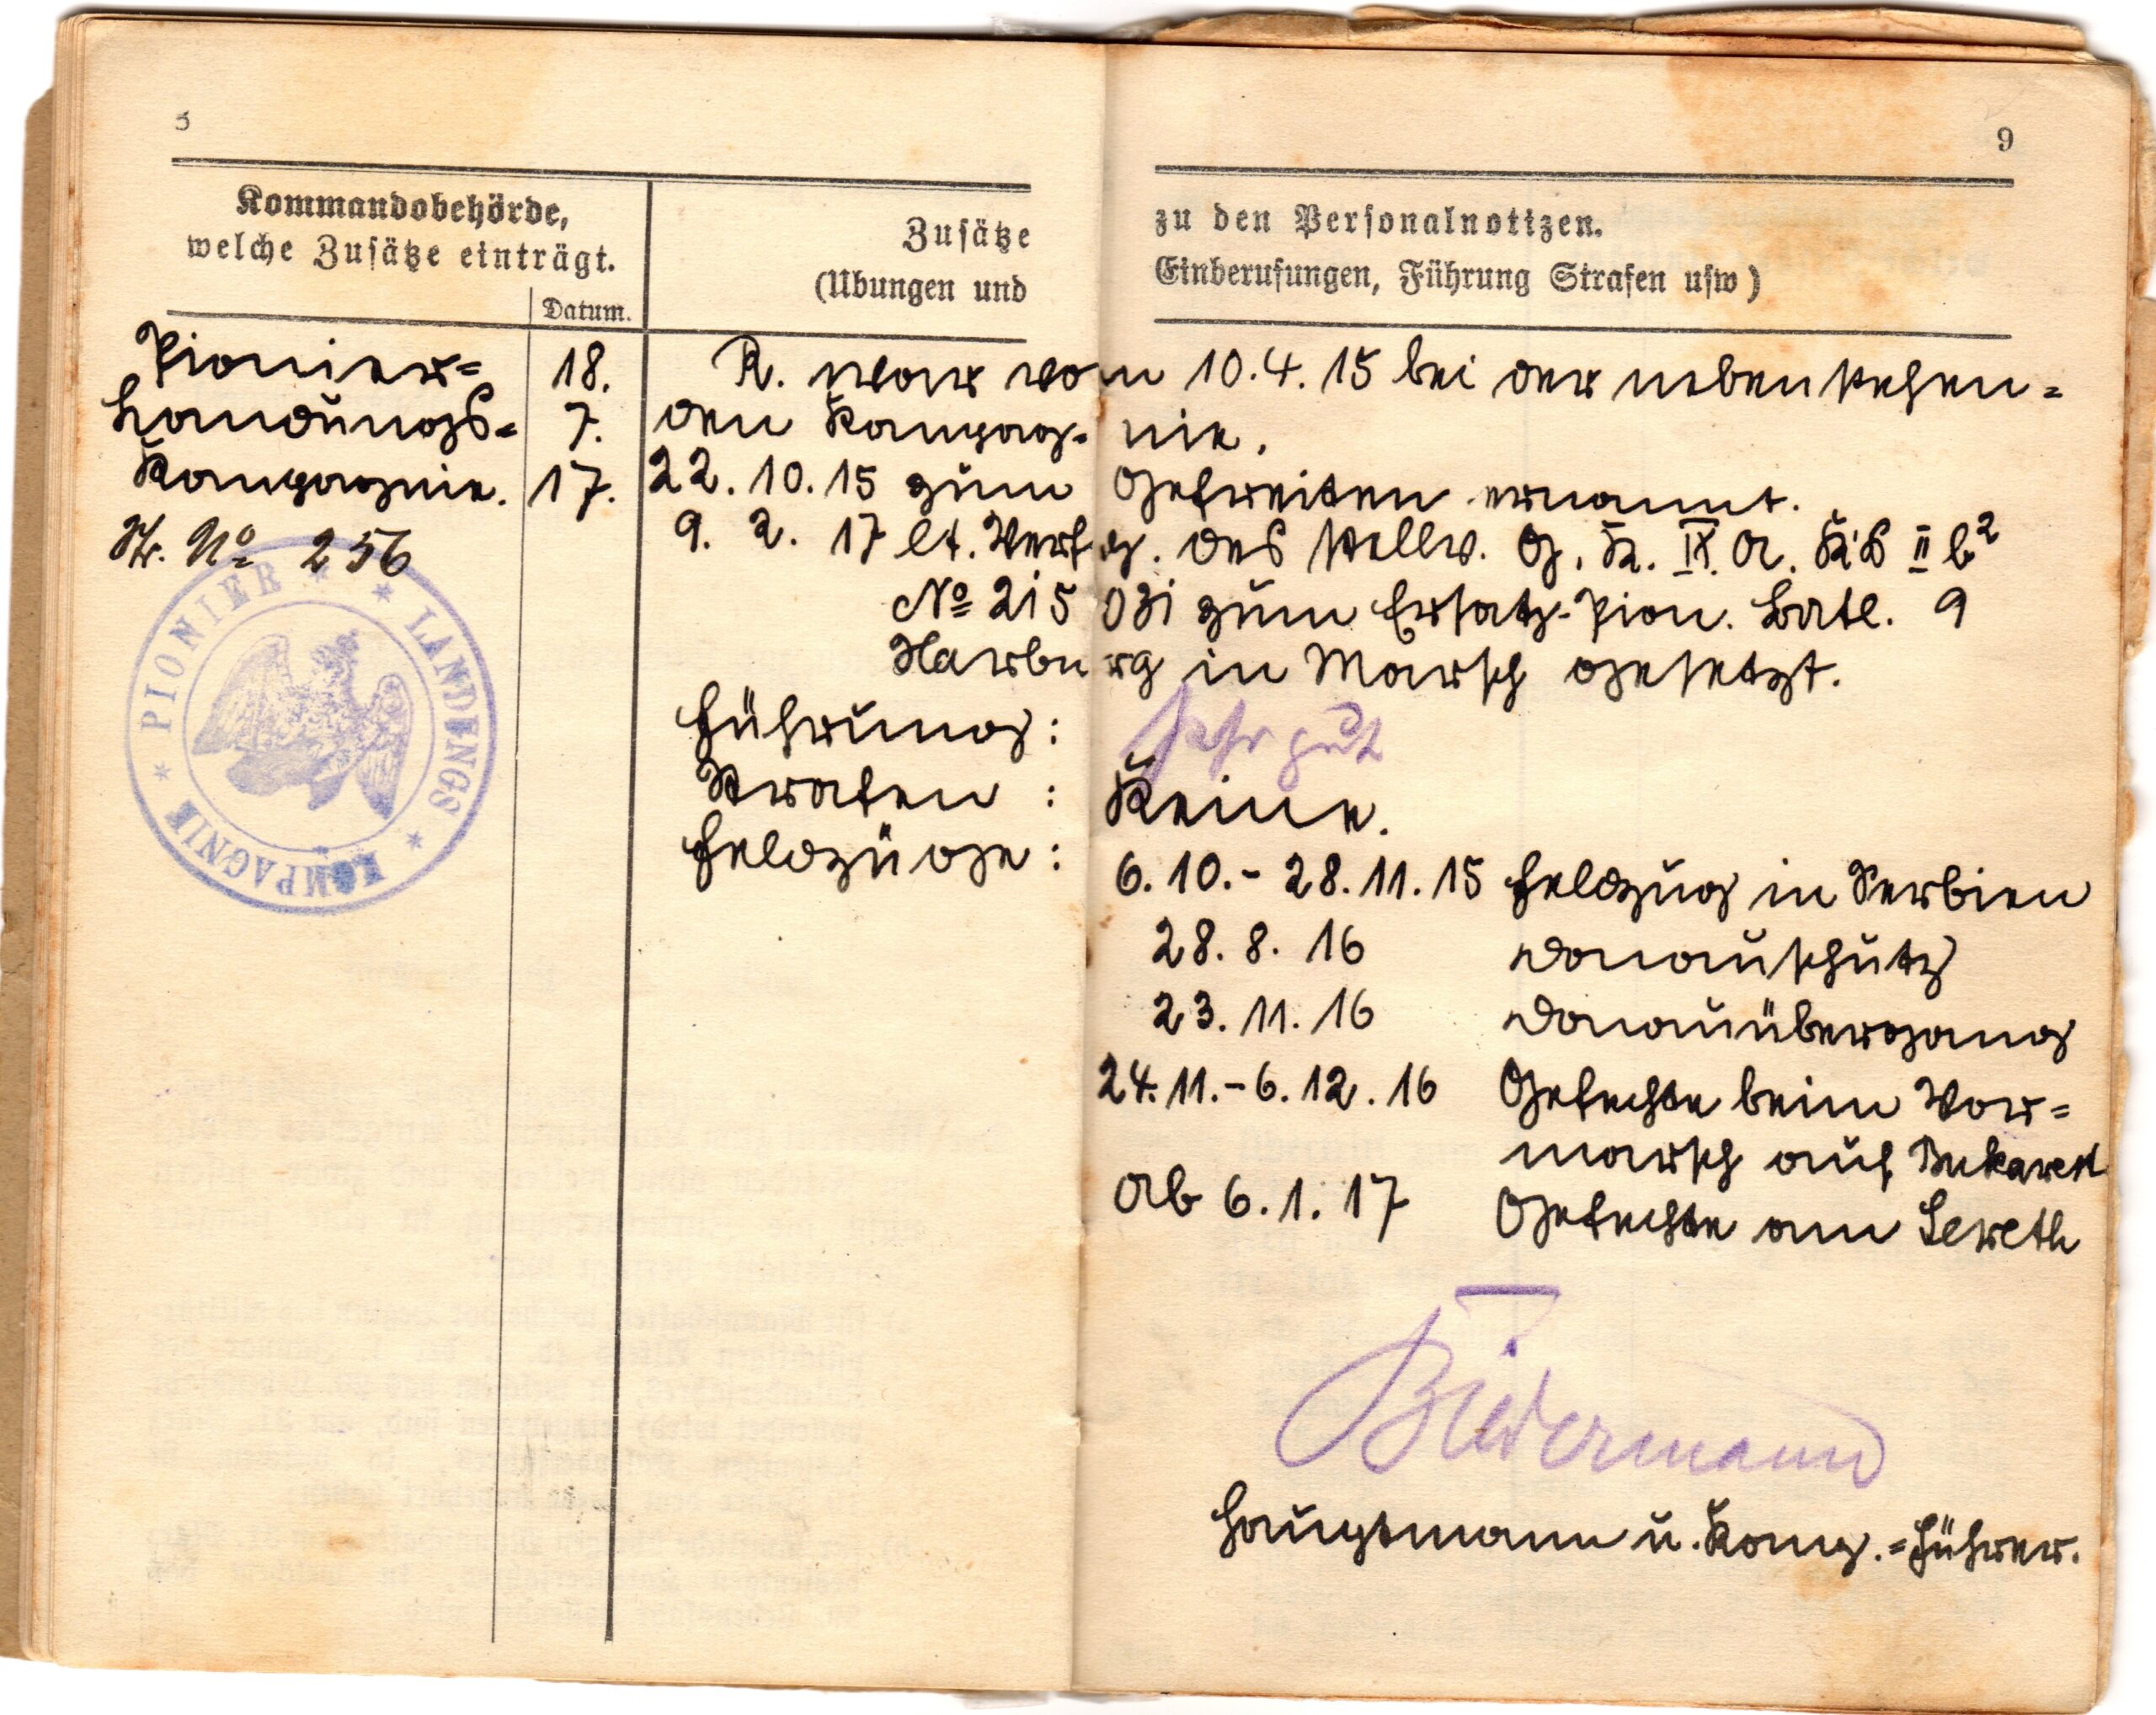 8
Kommandobehörde,
welche Zusätze einträgt.
Datum.
Zusätze
(Übungen und
Pionier=
Landungs=
Kompagnie.
St. No 256
18.
7.
17.
PIONIER * LANDUNGS * KOMPAGNIE *
9
zu den Personalnotizen.
Einberufungen, Führung Strafen usw)
R. war vom 10.4.15 bei der nebenstehen=
den Kompag- nie.
22.10.15 zum Gefreiten ernannt.
9. 2. 17 lt. Verfg. des stellv. G. K. IX. A. K's II b2
No 215 031 zum Ersatz-Pion. Batl. 9
Harburg in Marsch gesetzt.
Führung: Sehr gut
Strafen : Keine.
Feldzüge:
6.10.- 28.11.15 Feldzug in Serbien
28. 8. 16 Donauschutz
23. 11. 16 Donauübergang
24.11.-6.12.16 Gefechte beim Vor=
marsch auf Bukarest
Ab 6.1.17 Gefechte am Sereth
Biedermann
Hauptmann u. Komp.=Führer.